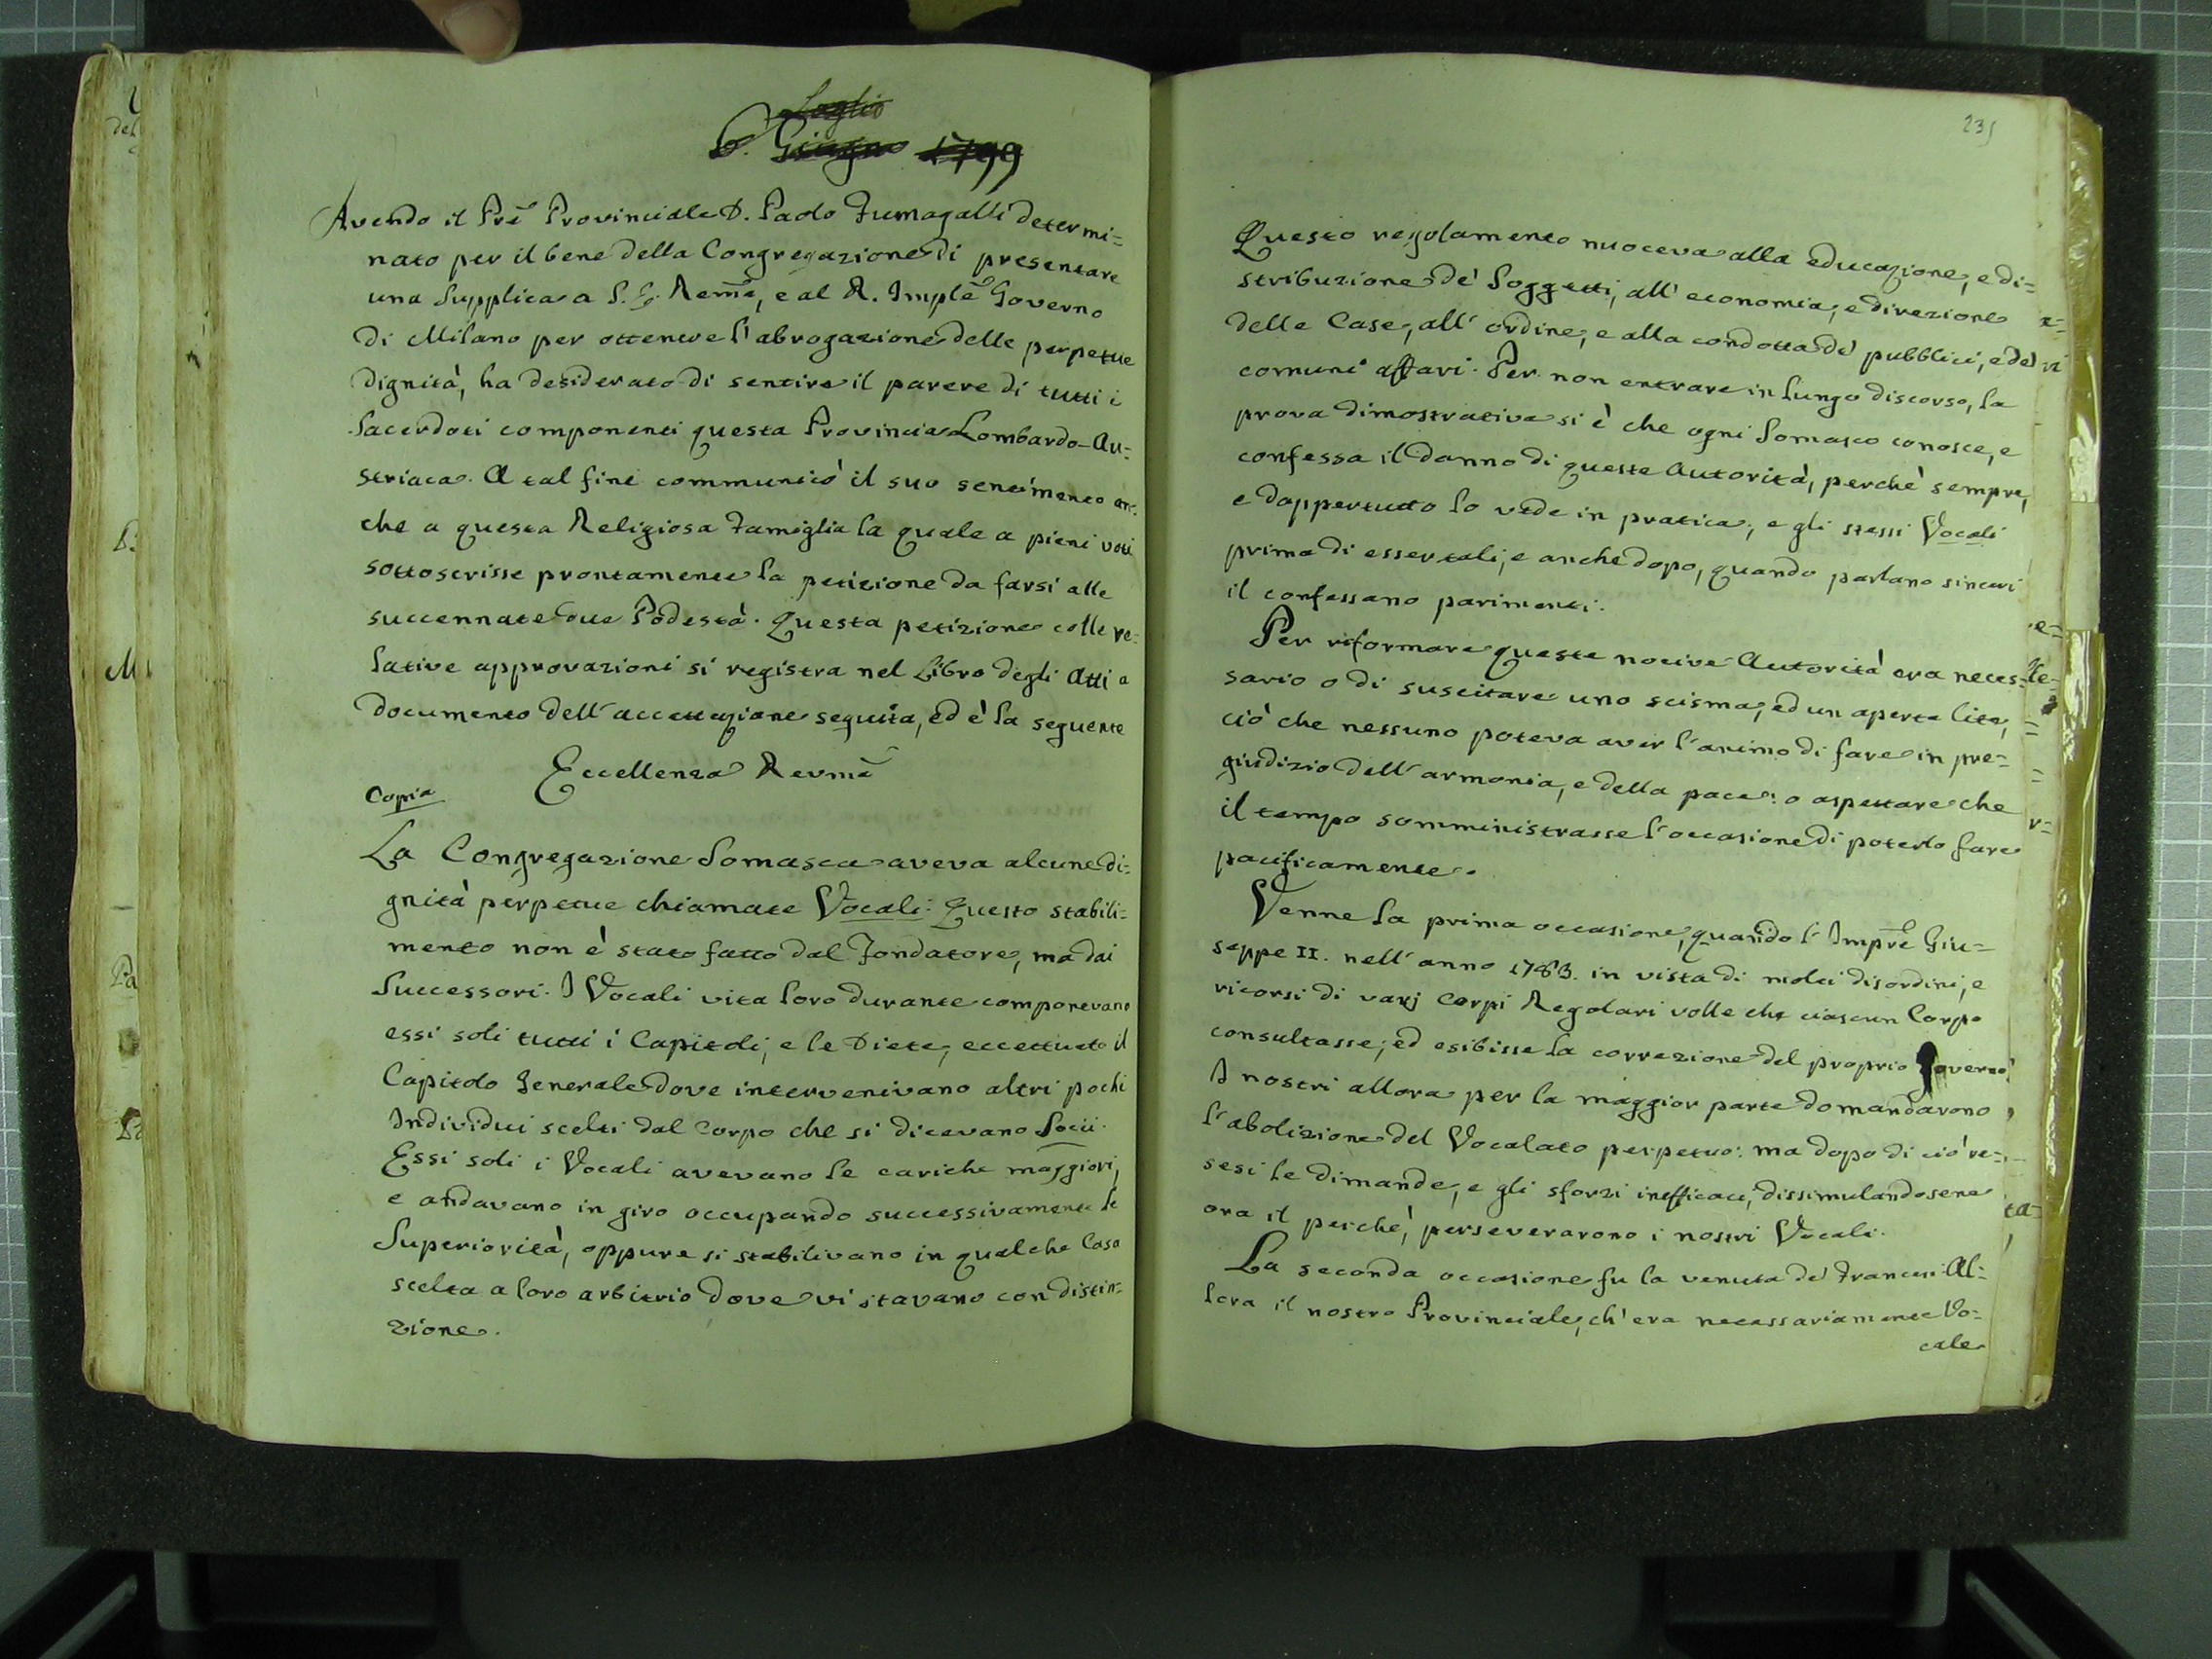 Luglio
6. Giugno 1799
Avendo il Prē Provinciale D. Paolo Fumagalli determi=
nato per il bene della Congregazione di presentare
una Supplica a S. E. Remã, e al R. Implē Governo
di Milano per ottenere l'abrogazione delle perpetue
dignità, ha desiderato di sentire il parere di tutti i
Sacerdoti componenti questa Provincia Lombardo-Au=
striaca. A tal fine communicò il suo sentimento an=
che a questa Religiosa Famiglia la quale a pieni voti
sottoscrisse prontamente la petizione da farsi alle
succennate due Podestà. Questa petizione colle re=
lative approvazioni si registra nel Libro degli Atti a
documento dell'accettazione seguita, ed è la seguente
Eccellenza Revmã
Copia
La Congregazione Somasca aveva alcune di=
gnità perpetue chiamate Vocali. Questo stabili=
mento non è stato fatto dal Fondatore, ma dai
Successori. I Vocali vita loro durante componevano
essi soli tutti i Capitoli, e le Diete, eccettuato il
Capitolo Generale dove intervenivano altri pochi
Individui scelti dal Corpo che si dicevano Socii.
Essi soli i Vocali avevano le cariche maggiori,
e andavano in giro occupando successivamente le
Superiorità, oppure si stabilivano in qualche Casa
scelta a loro arbitrio dove vi stavano con distin=
zione.
235
Questo regolamento nuoceva alla educazione, e di=
stribuzione de' Soggetti, all'economia, e direzione
delle Case, all'ordine, e alla condotta de' pubblici, e de'
comuni affari. Per non entrare in lungo discorso, la
prova dimostrativa si è che ogni Somasco conosce, e
confessa il danno di queste Autorità, perchè sempre,
e dappertutto lo vede in pratica, e gli stessi Vocali
prima di esser tali, e anche dopo, quando parlano sinceri
il confessano parimenti.
Per riformare queste nocive Autorità era neces=
sario o di suscitare uno scisma, ed un aperta lite,
ciò che nessuno poteva aver l'animo di fare in pre=
giudizio dell'armonia, e della pace: o aspettare che
il tempo somministrasse l'occasione di poterlo fare
pacificamente.
Venne la prima occasione, quando l'Imprē Giu=
seppe II. nell'anno 1783. in vista di molti disordini, e
ricorsi di varj Corpi Regolari volle che ciascun Corpo
consultasse, ed esibisse la correzione del proprio Governo.
I nostri allora per la maggior parte domandarono
l'abolizione del Vocalato perpetuo: ma dopo di ciò re=
sesi le dimande, e gli sforzi inefficaci, dissimulandosene
ora il perchè, perseverarono i nostri Vocali.
La seconda occasione fu la venuta de' Francesi. Al=
lora il nostro Provinciale, ch'era necessariamente Vo=
cale